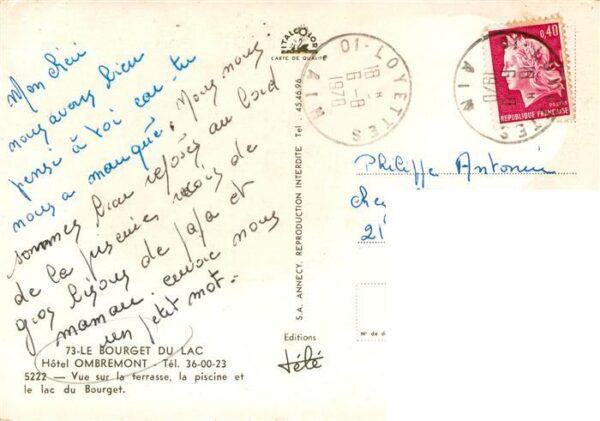 Mon chéri
nous avons bien
pensé à toi car tu
nous a manqué. Nous nous
sommes bien reposés au bord
de la piscine
gros bisous de papa et
maman. envoie nous
un petit mot.
73-LE BOURGET DU LAC
Hôtel OMBREMONT - Tél. 36-00-23
5222 — Vue sur la terrasse, la piscine et
le lac du Bourget.
ITALCOLOR
CARTE DE QUALITÉ
S.A. ANNECY. REPRODUCTION INTERDITE Tel - 45.46.96
Editions
télé
01-LOYETTES
18 H
6-8
1970
AIN
0,40
REPUBLIQUE FRANÇAISE
POSTES
AIN
Philippe Antonin
21
N° de d